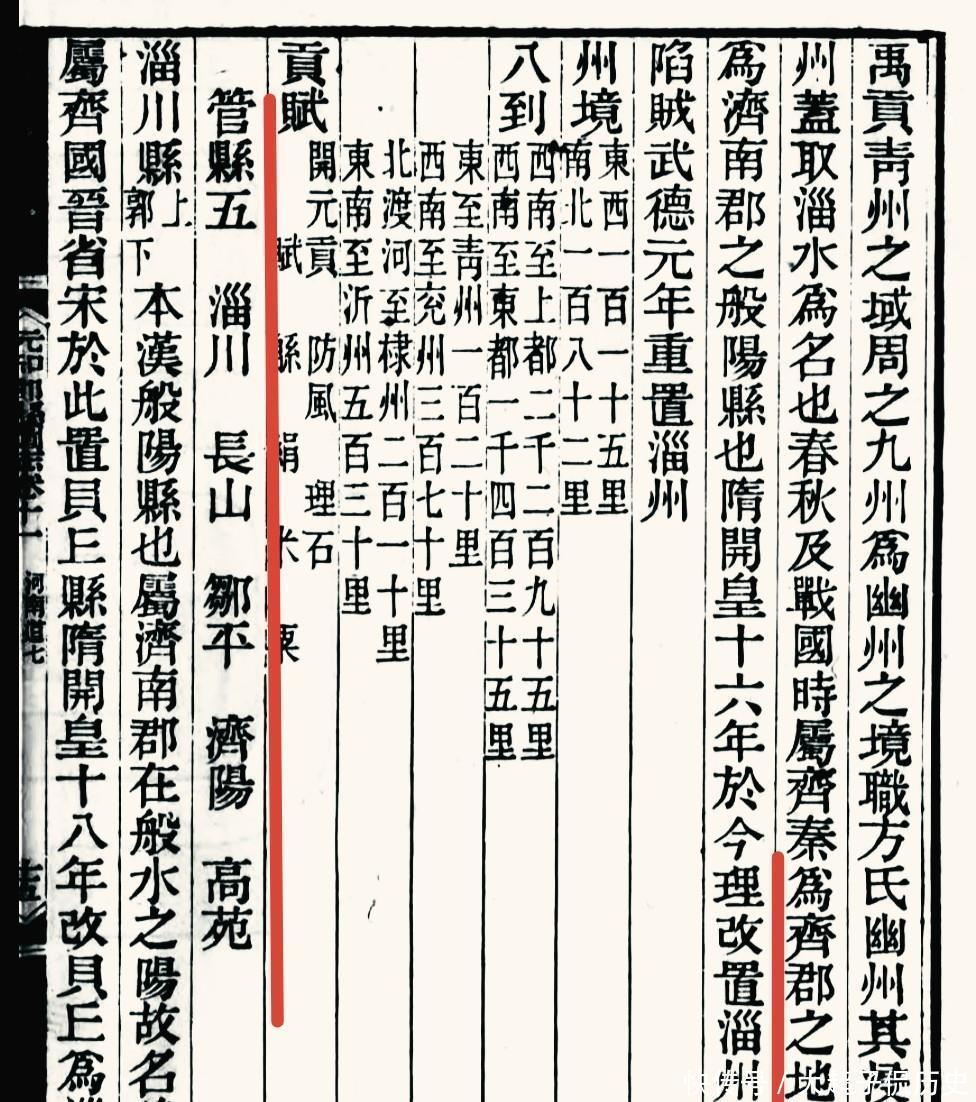 禹貢青州之域周之九州為幽州之境職方氏幽州其
州蓋取淄水為名也春秋及戰國時屬齊秦為齊郡之地
為濟南郡之般陽縣也隋開皇十六年於今理改置淄州
陷賊武德元年重置淄州
州境
東西一百一十五里
南北一百八十二里
八到
西南至上都二千二百九十五里
西南至東都一千四百三十五里
東至青州一百二十里
西南至兖州三百七十里
北渡河至棣州二百一十里
東南至沂州五百三十里
貢賦
開元貢 防風 理石
賦 緜 絹 米 粟
管縣五 淄川 長山 鄒平 濟陽 高苑
淄川縣
上
郭下
本漢般陽縣也屬濟南郡在般水之陽故名
屬齊國晉省宋於此置貝丘縣隋開皇十八年改貝丘為
河南道七